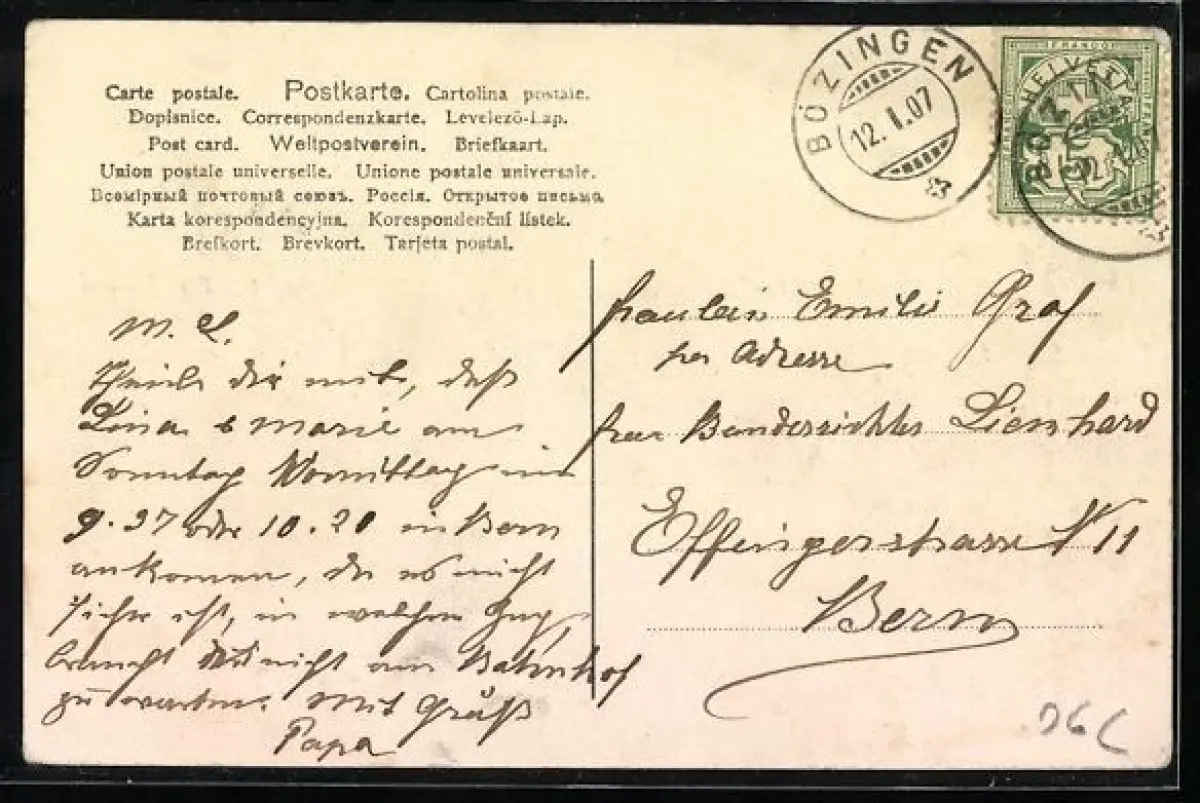 Carte postale. Postkarte. Cartolina postale.
Dopisnice. Correspondenzkarte. Levelezö-Lap.
Post card. Weltpostverein. Briefkaart.
Union postale universelle. Unione postale universale.
Всемірный почтовый союзъ. Россія. Открытое письмо.
Karta korespondencyjna. Korespondenční lístek.
Brefkort. Brevkort. Tarjeta postal.
BÖZINGEN
12.I.07
FRANCO
HELVETIA
BÖZI
5
M. L.
Theile dir mit, daß
Lina & Marie am
Sonntag Vormittag um
9.37 oder 10.20 in Bern
ankomen, da es nicht
sicher ist, in welchem Zug,
braucht nicht am Bahnhof
zu warten. Mit Gruß
Papa
Fräulein Emilie Graf
per Adresse
Frau Bundesrichter Lienhard
Effingerstrasse No 11
Bern